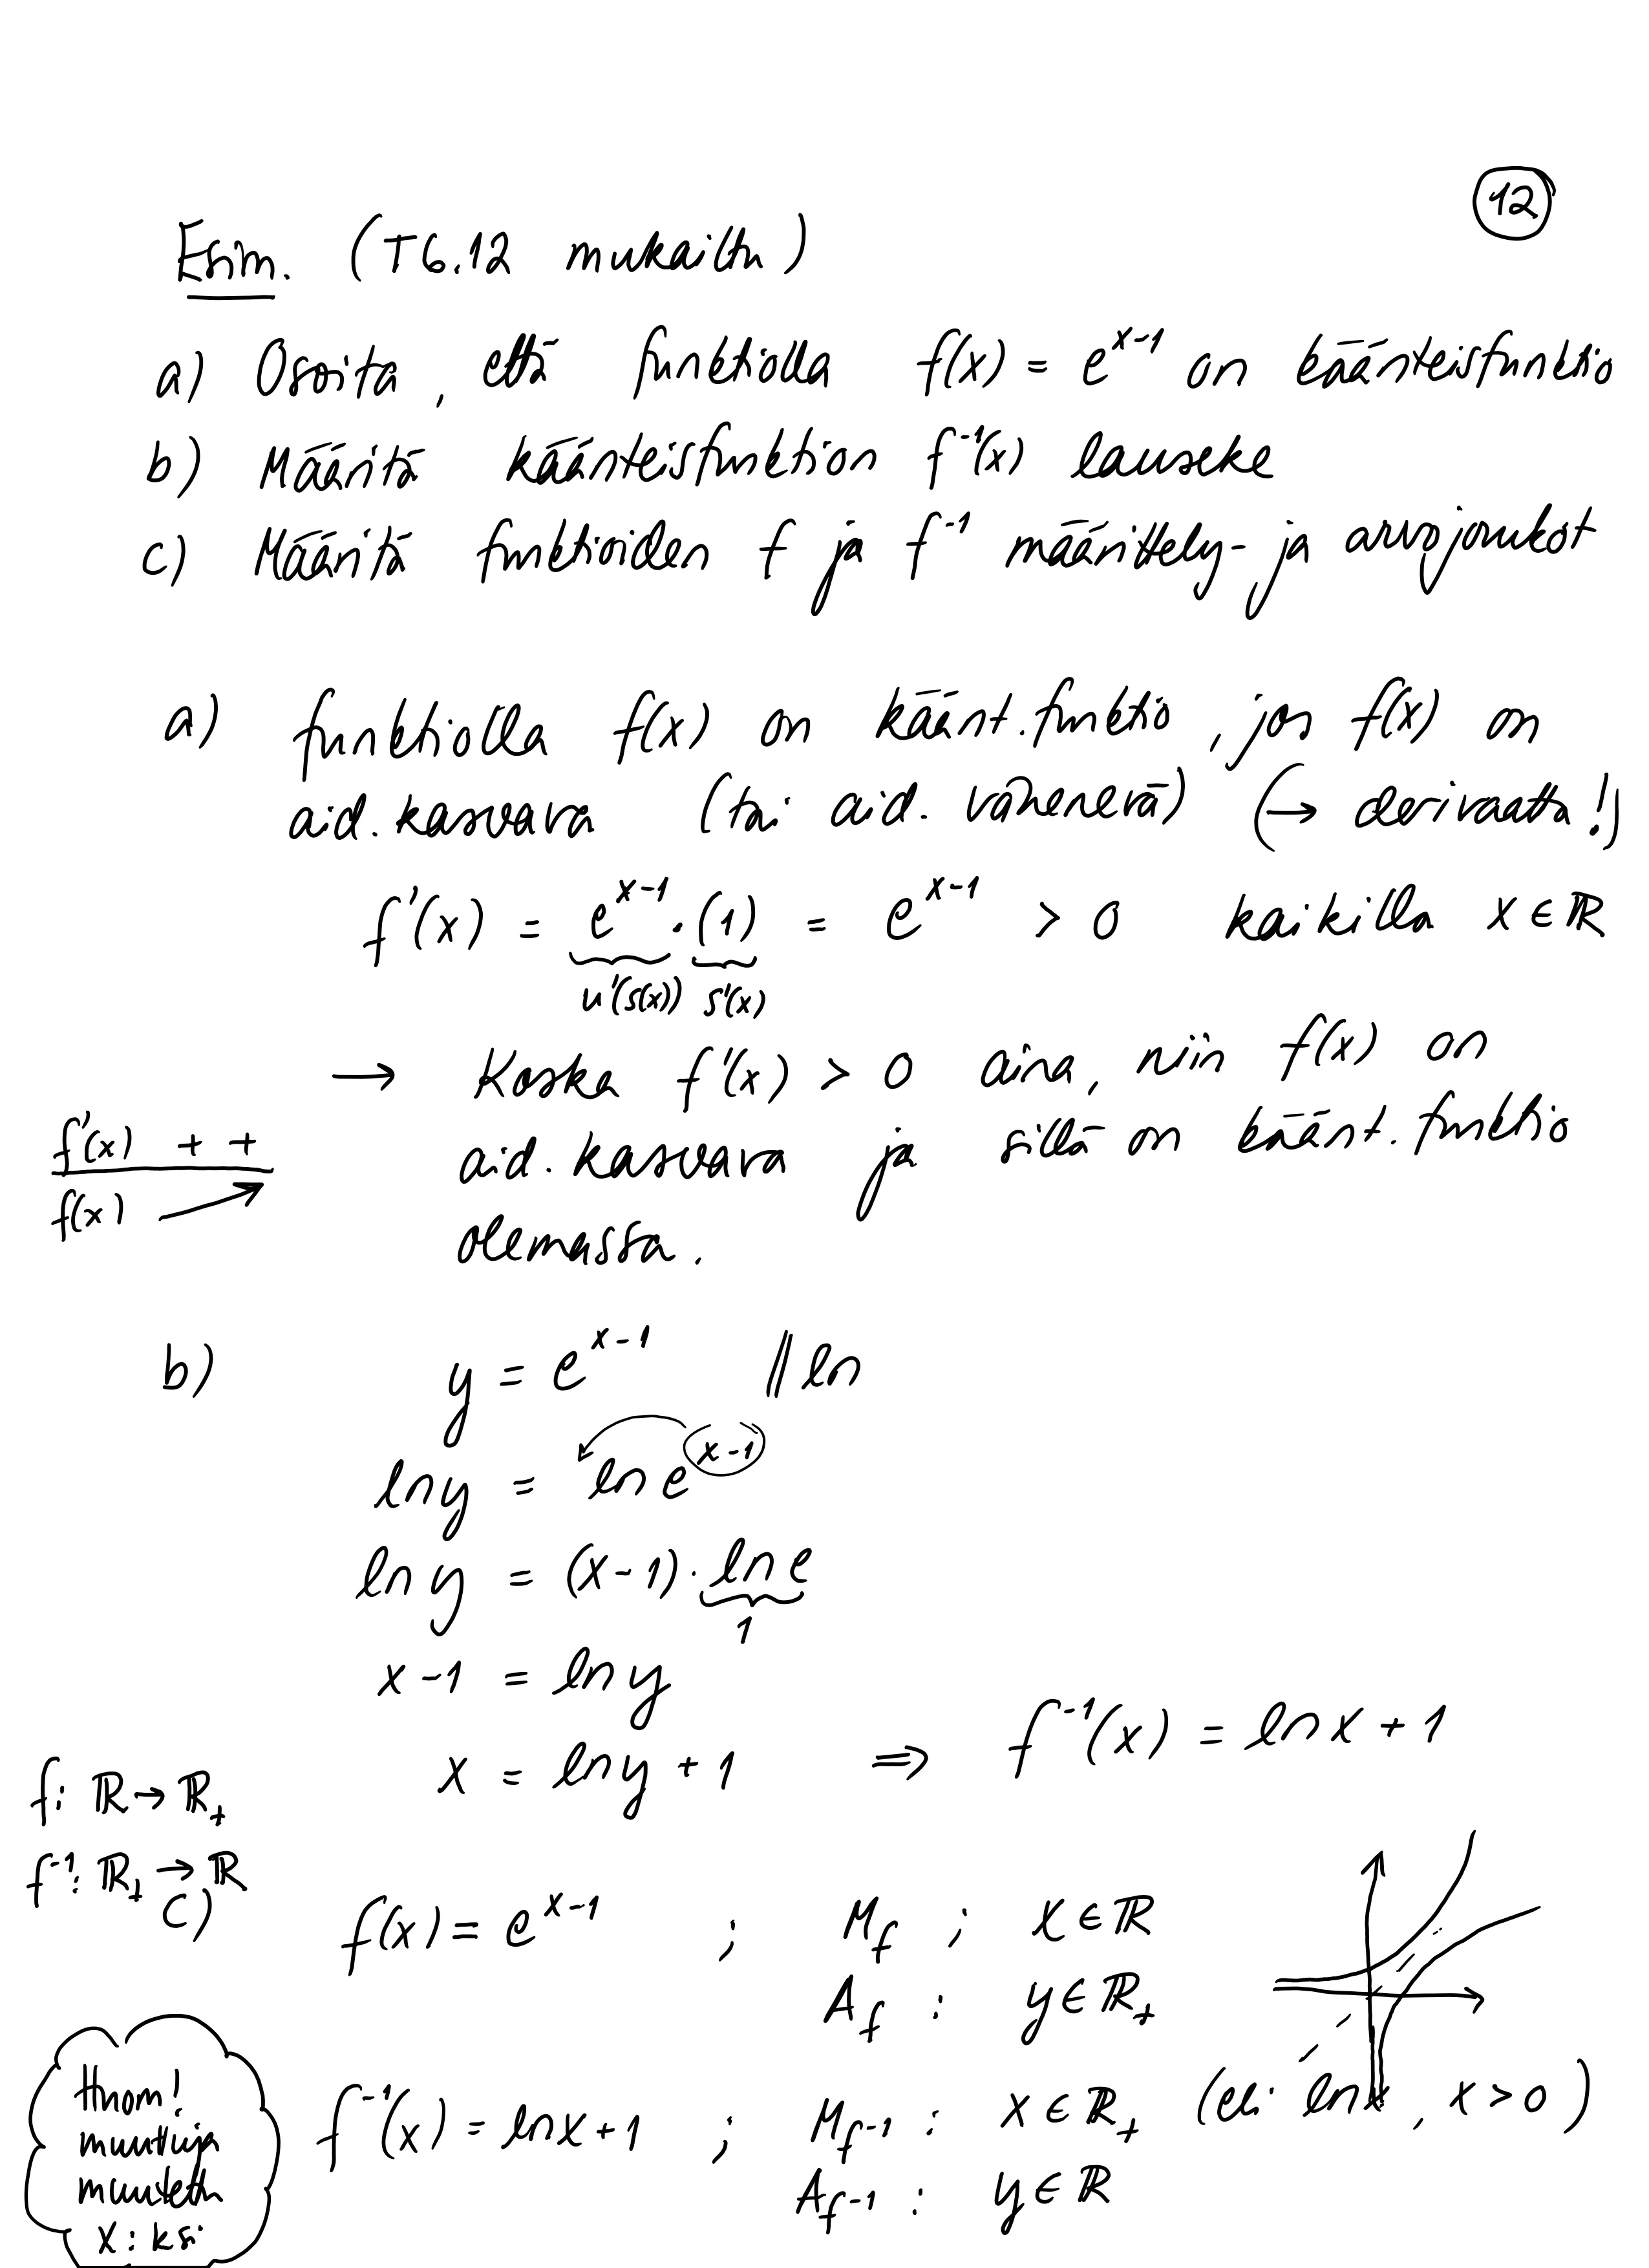 12
Esim. (T6.12 mukailtu)
a) Osoita, että funktiolla f(x) = e^{x-1} on käänteisfunktio
b) Määritä käänteisfunktion f^{-1}(x) lauseke
c) Määritä funktioiden f ja f^{-1} määrittely- ja arvojoukot
a) funktiolla f(x) on käänt.funktio, jos f(x) on
aid.kasvava (tai aid. vähenevä) (→ derivaatta!)
f'(x) = e^{x-1} · (1) = e^{x-1} > 0 kaikilla x ∈ ℝ
u'(s(x)) s'(x)
→ Koska f'(x) > 0 aina, niin f(x) on
aid. kasvava ja sillä on käänt. funktio
olemassa.
f'(x) + +
f(x)
b) y = e^{x-1} ‖ ln
ln y = ln e^{x-1}
ln y = (x-1) · ln e
1
x - 1 = ln y
x = ln y + 1 ⇒ f^{-1}(x) = ln x + 1
f: ℝ → ℝ₊
f^{-1}: ℝ₊ → ℝ
c) f(x) = e^{x-1} ; M_f ; x ∈ ℝ
A_f : y ∈ ℝ₊
f^{-1}(x) = ln x + 1 ; M_{f^{-1}} : x ∈ ℝ₊ (eli ln x, x > 0)
A_{f^{-1}} : y ∈ ℝ
Huom!
muuttuja
muutettu
x:ksi